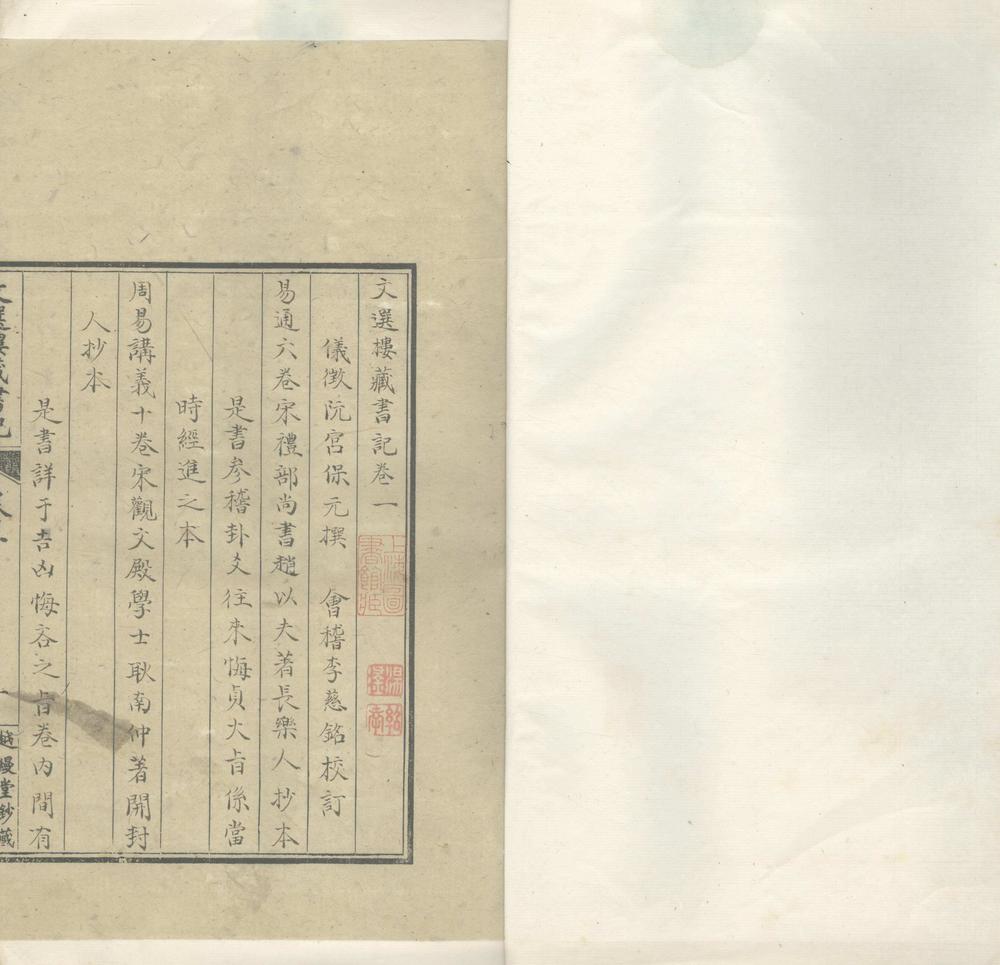 文選樓藏書記卷一
儀徵阮宮保元撰　會稽李慈銘校訂
易通六卷宋禮部尚書趙以夫著長樂人抄本
是書参稽卦爻往来悔貞大旨係當
時經進之本
周易講義十卷宋觀文殿學士耿南仲著開封
人抄本
是書詳于吉凶悔吝之旨卷內間有
文選樓藏書記
卷一
一
越縵堂鈔藏
上海圖書館藏